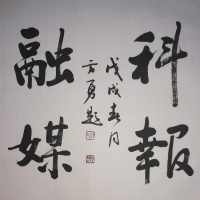 科報
融媒
戊戌春月
方勇題